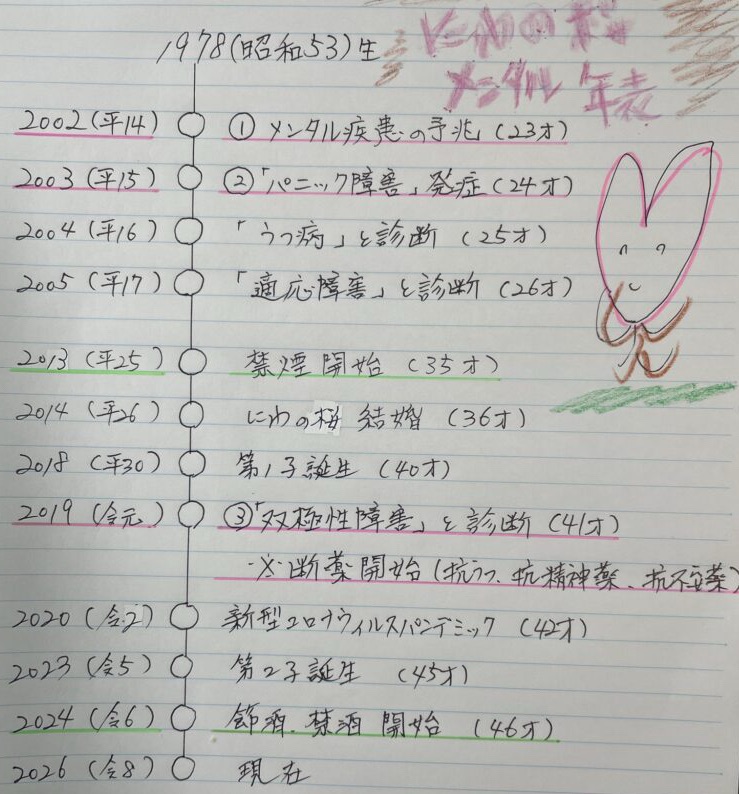 にわの桜
メンタル 年表
1978(昭和53)生
2002(平14) ① メンタル疾患の予兆 (23才)
2003(平15) ②「パニック障害」発症 (24才)
2004(平16) 「うつ病」と診断 (25才)
2005(平17) 「適応障害」と診断 (26才)
2013(平25) 禁煙開始 (35才)
2014(平26) にわの桜 結婚 (36才)
2018(平30) 第1子誕生 (40才)
2019(令元) ③「双極性障害」と診断 (41才)
※断薬開始(抗うつ、抗精神薬、抗不安薬)
2020(令2) 新型コロナウィルスパンデミック (42才)
2023(令5) 第2子誕生 (45才)
2024(令6) 節酒、禁酒 開始 (46才)
2026(令8) 現在